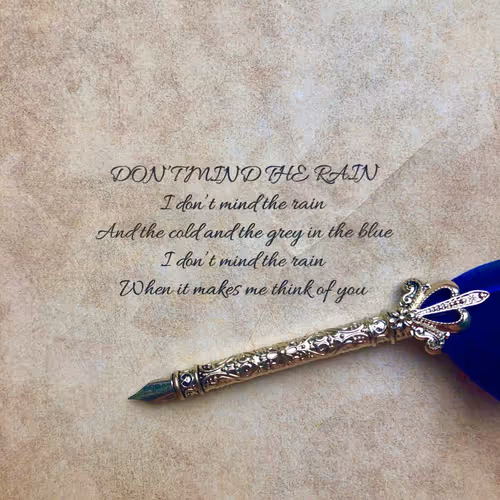 DON'T MIND THE RAIN
I don't mind the rain
And the cold and the grey in the blue
I don't mind the rain
When it makes me think of you